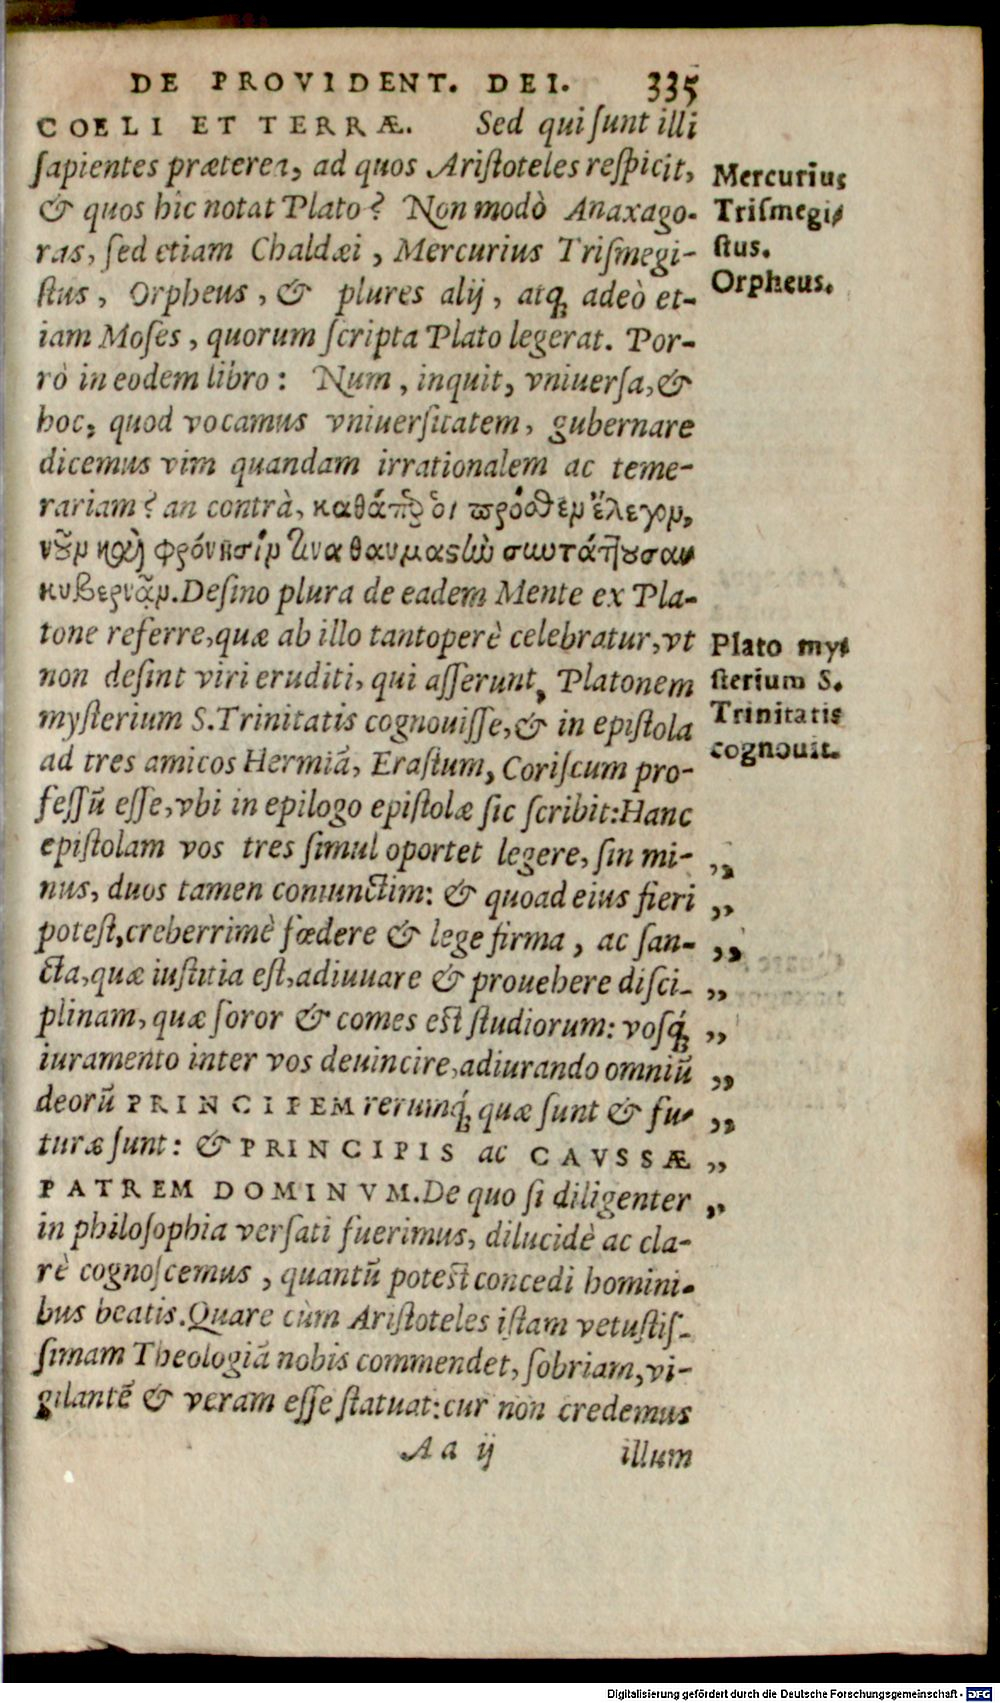 DE PROVIDENT. DEI. 335
COELI ET TERRÆ. Sed qui ſunt illi
ſapientes præterea, ad quos Ariſtoteles reſpicit,
& quos hîc notat Plato? Non modò Anaxago-
ras, ſed etiam Chaldæi, Mercurius Triſmegi-
ſtus, Orpheus, & plures alij, atq; adeò et-
iam Moſes, quorum ſcripta Plato legerat. Por-
rò in eodem libro: Num, inquit, vniuerſa, &
hoc, quod vocamus vniuerſitatem, gubernare
dicemus vim quandam irrationalem ac teme-
rariam? an contrà, καθάπερ οἱ πρόσθεν ἔλεγον,
νοῦν καὶ φρόνησίν τινα θαυμαστὴν συντάττουσαν
κυβερνᾷν. Deſino plura de eadem Mente ex Pla-
tone referre, quæ ab illo tantoperè celebratur, vt
non deſint viri eruditi, qui aſſerunt, Platonem
myſterium S. Trinitatis cognouiſſe, & in epiſtola
ad tres amicos Hermiā, Eraſtum, Coriſcum pro-
feſſū eſſe, vbi in epilogo epiſtolæ ſic ſcribit: Hanc
epiſtolam vos tres ſimul oportet legere, ſin mi- „
nus, duos tamen coniunctim: & quoad eius fieri „
poteſt, creberrimè fœdere & lege firma, ac ſan- „
cta, quæ iuſtitia eſt, adiuuare & prouehere diſci- „
plinam, quæ ſoror & comes eſt ſtudiorum: voſq́; „
iuramento inter vos deuincire, adiurando omniū „
deorū PRINCIPEM rerumq́; quæ ſunt & fu- „
turæ ſunt: & PRINCIPIS ac CAVSSÆ „
PATREM DOMINVM. De quo ſi diligenter „
in philoſophia verſati fuerimus, dilucidè ac cla-
rè cognoſcemus, quantū poteſt concedi homini-
bus beatis. Quare cùm Ariſtoteles iſtam vetuſtiſ-
ſimam Theologiā nobis commendet, ſobriam, vi-
gilantē & veram eſſe ſtatuat: cur non credemus
Aa ij illum
Mercurius
Triſmegi-
ſtus.
Orpheus.
Plato my-
ſterium S.
Trinitatis
cognouit.
Digitalisierung gefördert durch die Deutsche Forschungsgemeinschaft - DFG